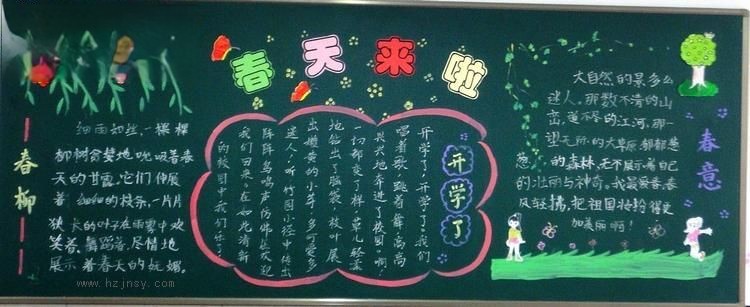 春天来啦
春柳
细雨如丝,一棵棵
柳树贪婪地吮吸着春
天的甘露。它们伸展
着细细的枝条,一片片
狭长的叶子在雨雾中欢
笑着,舞蹈着,尽情地
展示着春天的妩媚。
开学了
开学了,开学了,我们
唱着歌,跳着舞,高高
兴兴地走进了校园。啊!
一切都变了样,草儿轻轻
地钻出了脑袋,枝叶展
出嫩黄的小芽,多可爱多
迷人!听,竹园小径中传出
阵阵鸟鸣声,仿佛是欢迎
我们回来。在如此清新
的校园中,我们乐
春意
大自然的景多么
迷人,那数不清的山
峦,道不尽的江河,那一
望无际的大草原,郁郁葱
葱的森林,无不展示着自己
的壮丽与神奇。我最爱春,春
风轻拂,把祖国打扮得更
加美丽啊!
www.hzjnsy.com